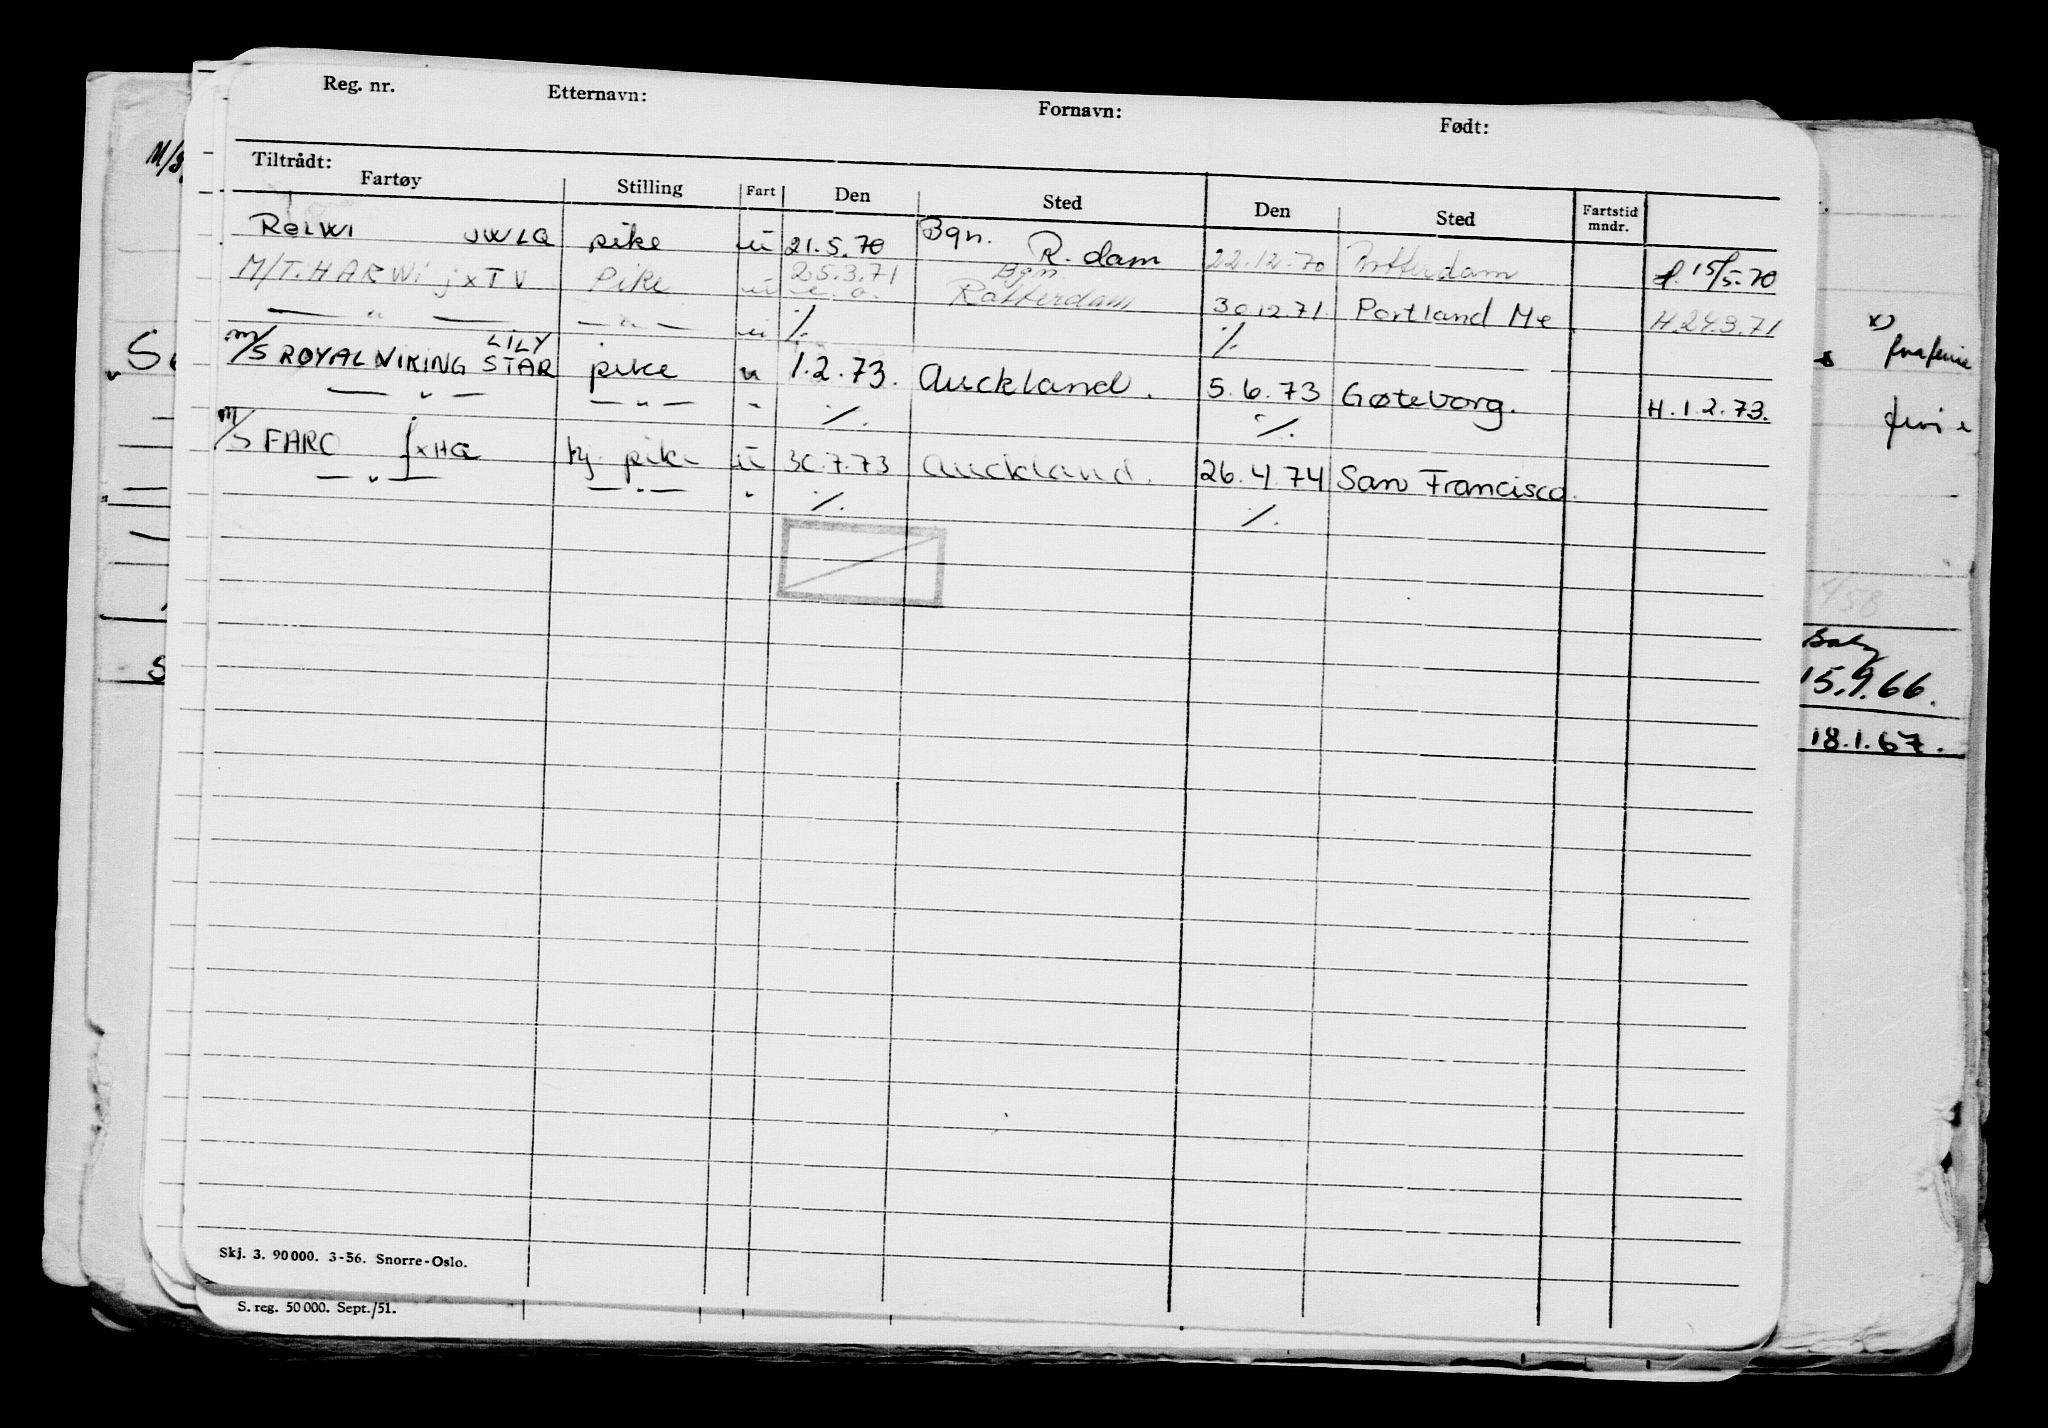 Reg. nr. Etternavn: Fornavn: Født:
Tiltrådt:
Fartøy Stilling Fart Den Sted Den Sted Fartstid mndr.
ROLWI JWLQ pike u 21.5.70 Bgn. R.dam 22.12.70 Rotterdam P. 15/5-70
M/T. HARWI jxTV Pike u 25.3.71 e.o. Bgn. Rotterdam 30.12.71 Portland Me H.24.3.71
— " — — " — u ·/. ·/.
LILY
M/S ROYAL VIKING STAR pike u 1.2.73. Auckland. 5.6.73 Gøteborg. H.1.2.73.
— " — — " — " ·/. ·/.
M/S FARO JXHQ pike u 30.7.73 Auckland. 26.4.74 San Francisco.
— " — — " — " ·/. ·/.
Skj. 3. 90 000. 3-56. Snorre-Oslo.
S. reg. 50 000. Sept./51.
M/S
x)
1/58
15.9.66.
18.1.67.